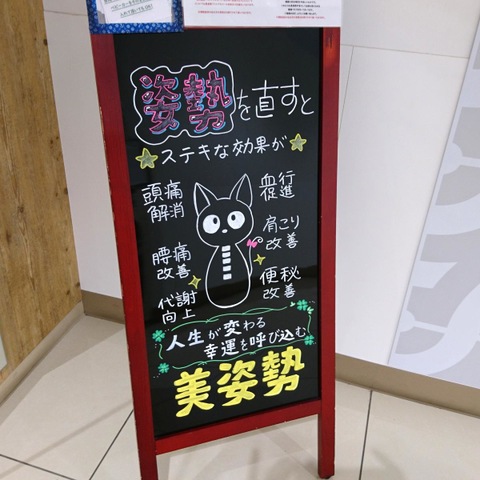 姿勢を直すと
ステキな効果が
頭痛
解消
腰痛
改善
代謝
向上
血行
促進
肩こり
改善
便秘
改善
人生が変わる
幸運を呼び込む
美姿勢